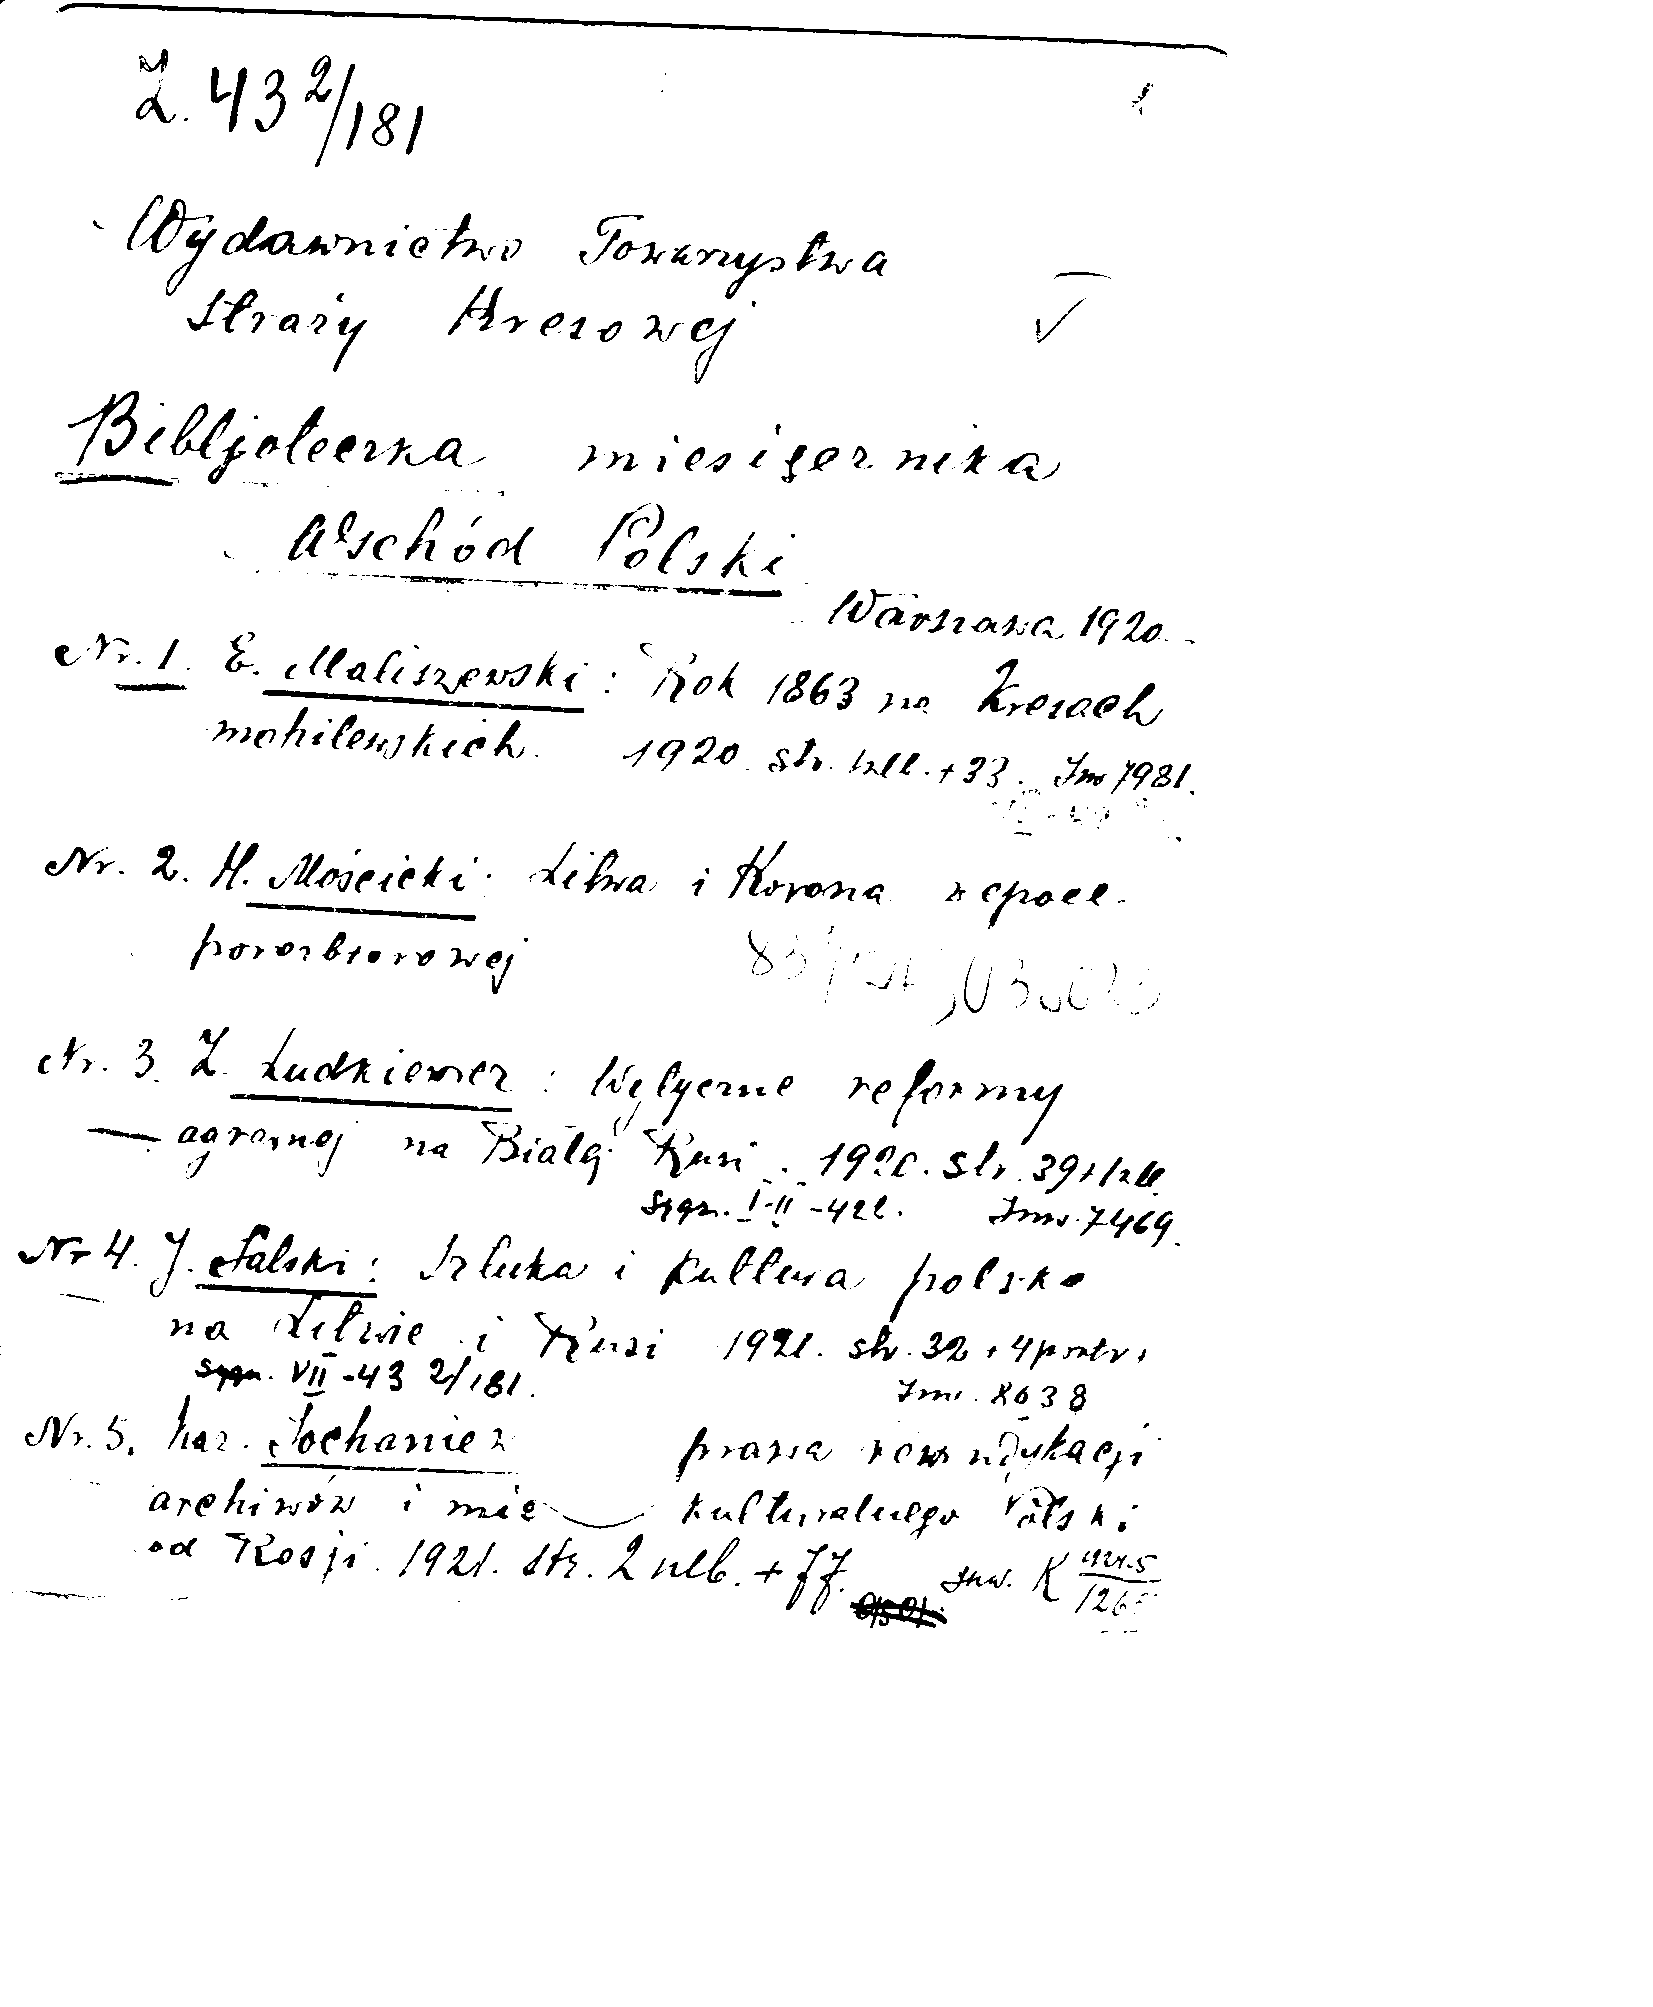 Z. 43 2/181
Wydawnictwo Towarzystwa
Straży Kresowej
Bibljoteczka miesięcznika
Wschód Polski
Warszawa 1920.
Nr. 1. E. Maliszewski: Rok 1863 na Kresach
mohilewskich. 1920. str. nll. + 33. Inw 7981.
Nr. 2. H. Mościcki: Litwa i Korona w epoce
porozbiorowej
Nr. 3. Z. Ludkiewicz: Wytyczne reformy
agrarnej na Białej Rusi. 1920. str. 39 + 1 nll.
sygn. I-II-422. Inw. 7469.
Nr 4. J. Talski: Sztuka i kultura polska
na Litwie i Rusi 1921. str. 32 + 4 portr.
sygn. VII-43 2/181. Inw. 8038
Nr. 5. kaz. Sochaniewicz prawa rewindykacji
archiwów i mie kulturalnego Polski
od Rosji. 1921. str. 2 nlb. + 77. inw. K